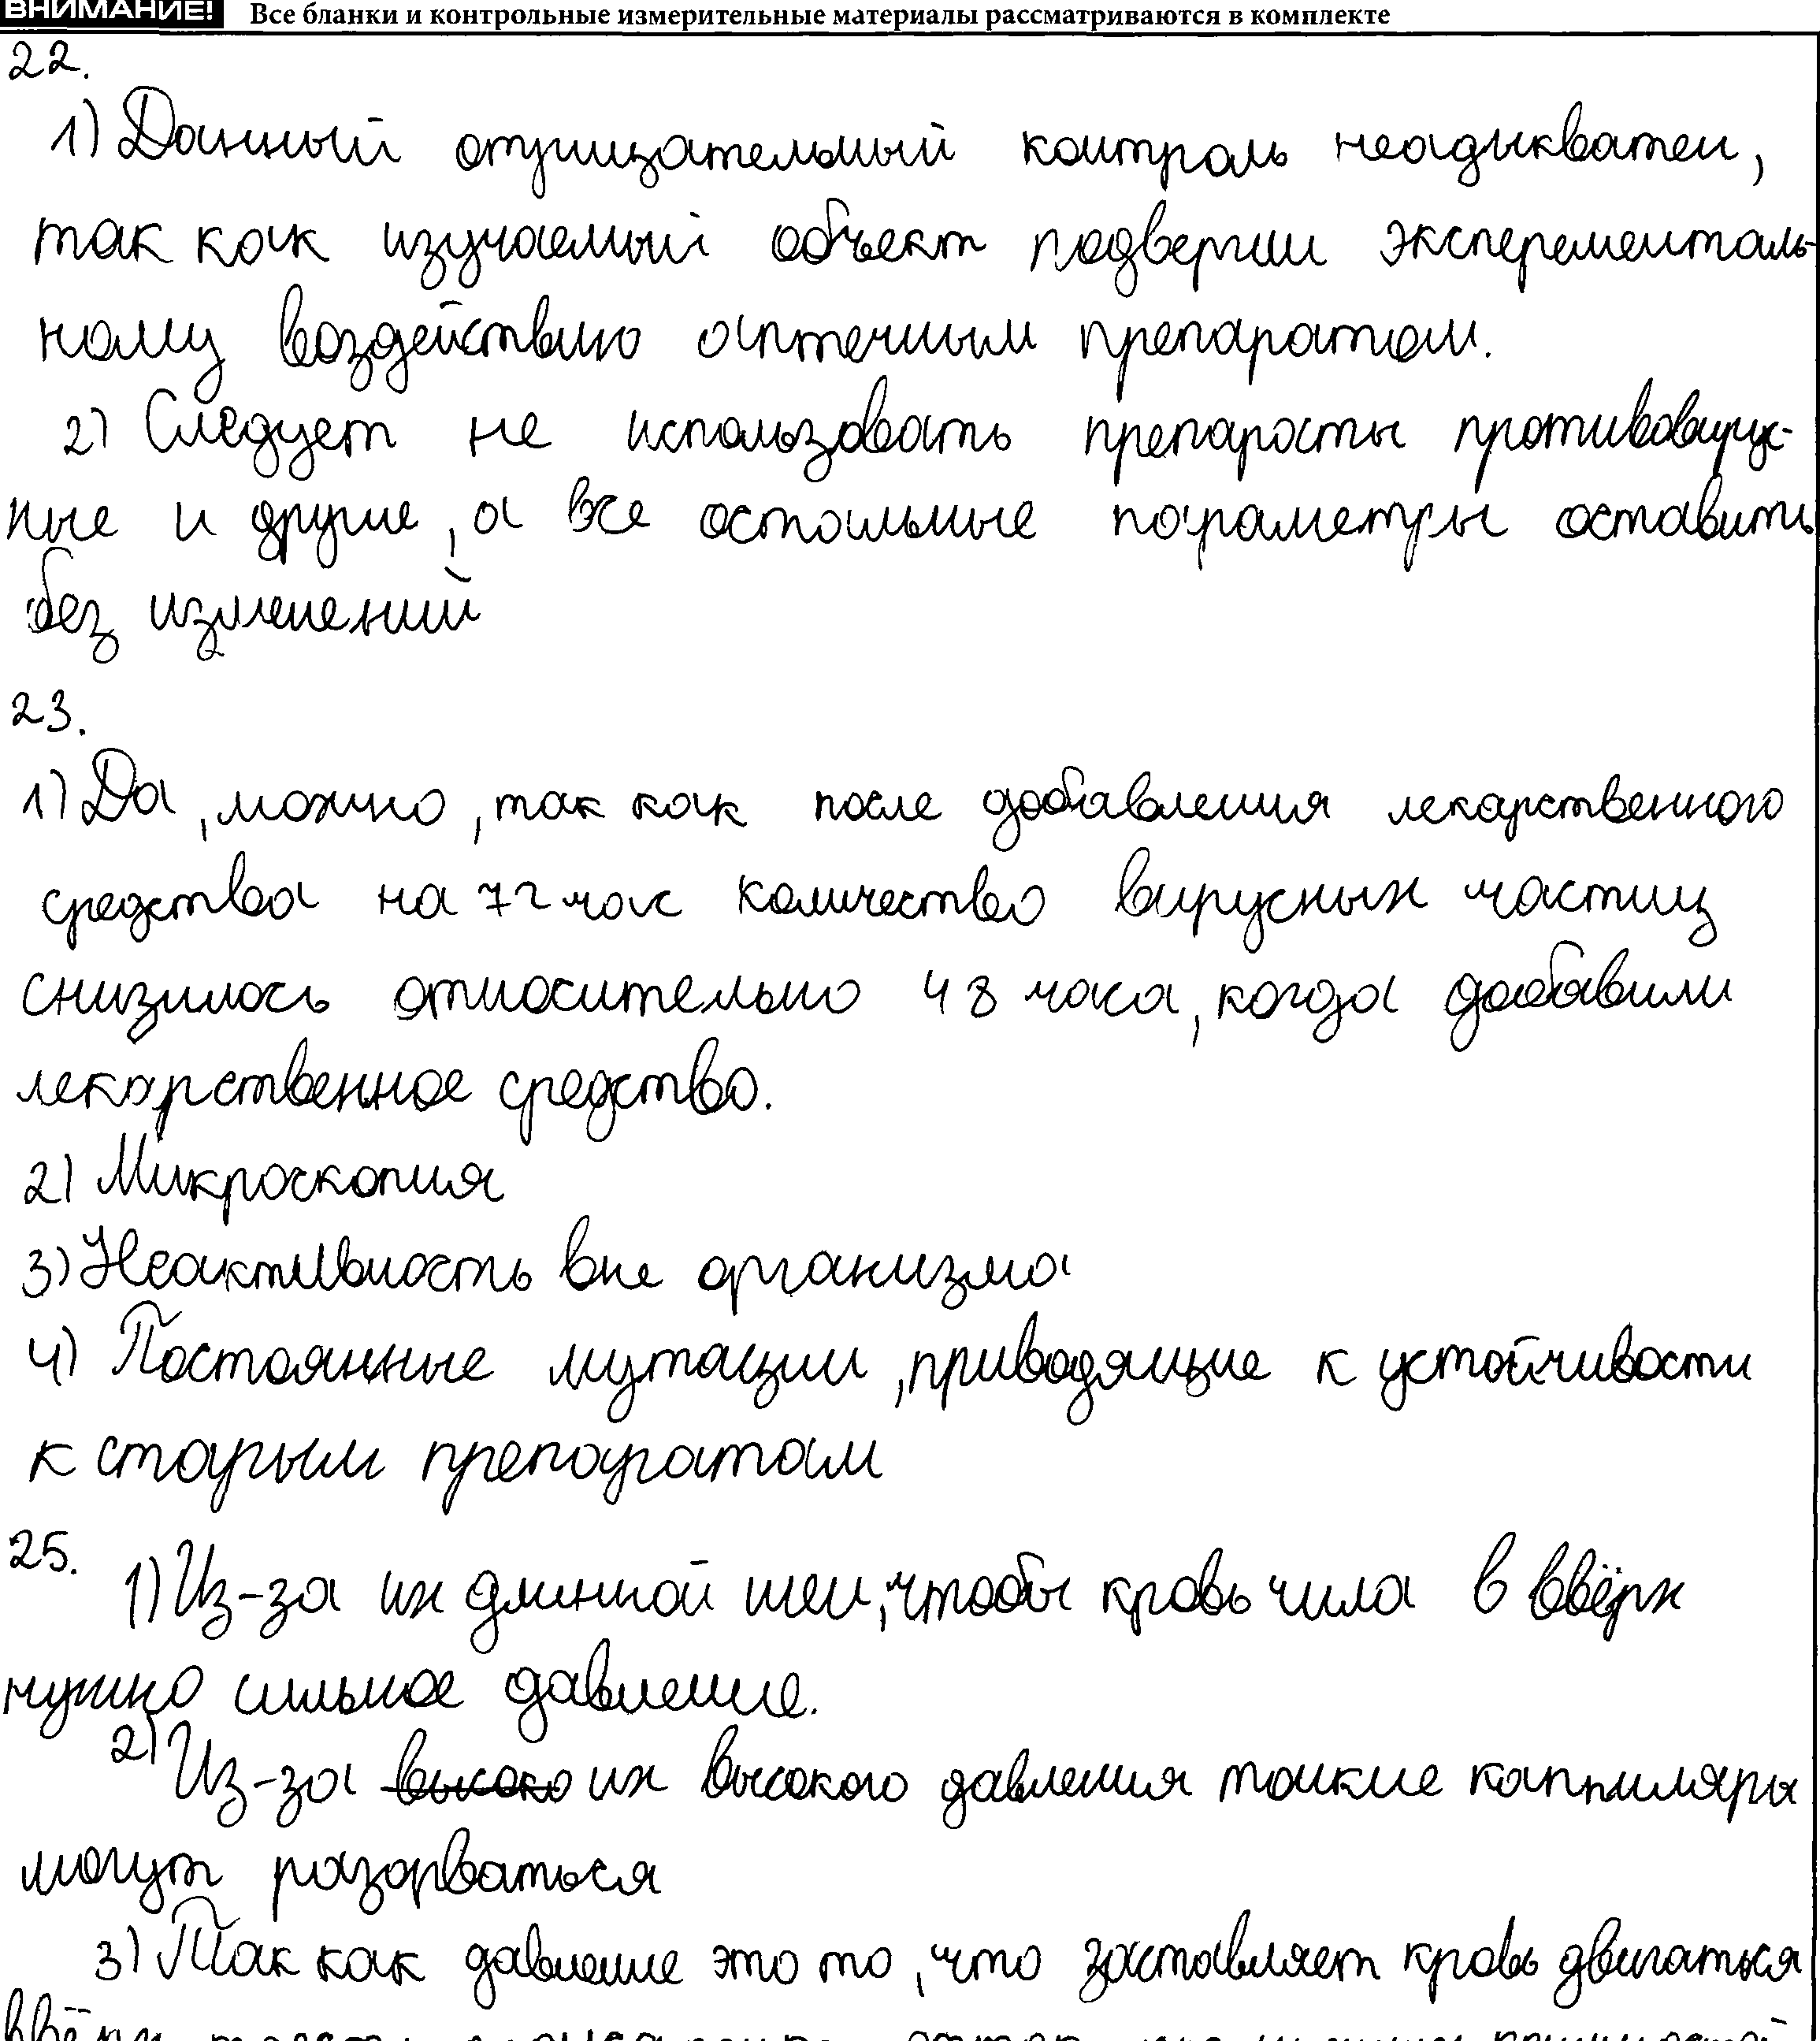 ВНИМАНИЕ! Все бланки и контрольные измерительные материалы рассматриваются в комплекте
22.
1) Данный отрицательный контроль неадыкватен,
так как изучаемый объект подвергли эксперементаль-
ному воздействию аптечным препаратом.
2) Следует не использовать препараты противовирус-
ные и другие, а все остальные параметры оставить
без изменений
23.
1) Да, можно, так как после добавления лекарственного
средства на 72 час количество вирусных частиц
снизилось относительно 48 часа, когда добавили
лекарственное средство.
2) Микроскопия
3) Неактивность вне организма
4) Постоянные мутации, приводящие к устойчивости
к старым препаратам
25. 1) Из-за их длинной шеи, чтобы кровь чила в ввёрх
нужно сильное давление.
2) Из-за высоко их высокого давления тонкие каппиляры
могут разорваться
3) Так как давление это то, что заставляет кровь двигаться
ввёрх